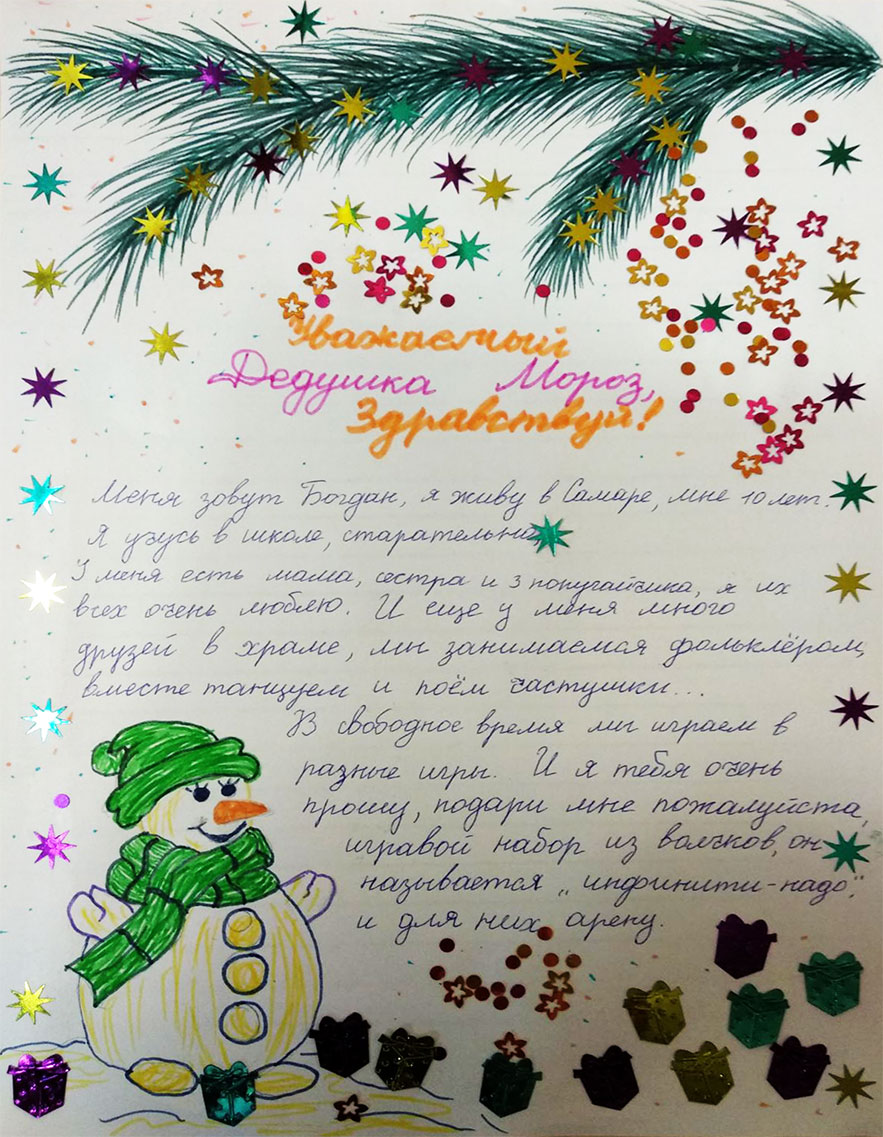 Уважаемый
Дедушка Мороз,
Здравствуй!
Меня зовут Богдан, я живу в Самаре, мне 10 лет.
Я учусь в школе, старательно,
У меня есть мама, сестра и 3 попугайчика, я их
всех очень люблю. И еще у меня много
друзей в храме, мы занимаемся фольклёром,
вместе танцуем и поём частушки...
В свободное время мы играем в
разные игры. И я тебя очень
прошу, подари мне пожалуйста,
игравой набор из волчков, он
называется „инфинити-надо",
и для них арену.